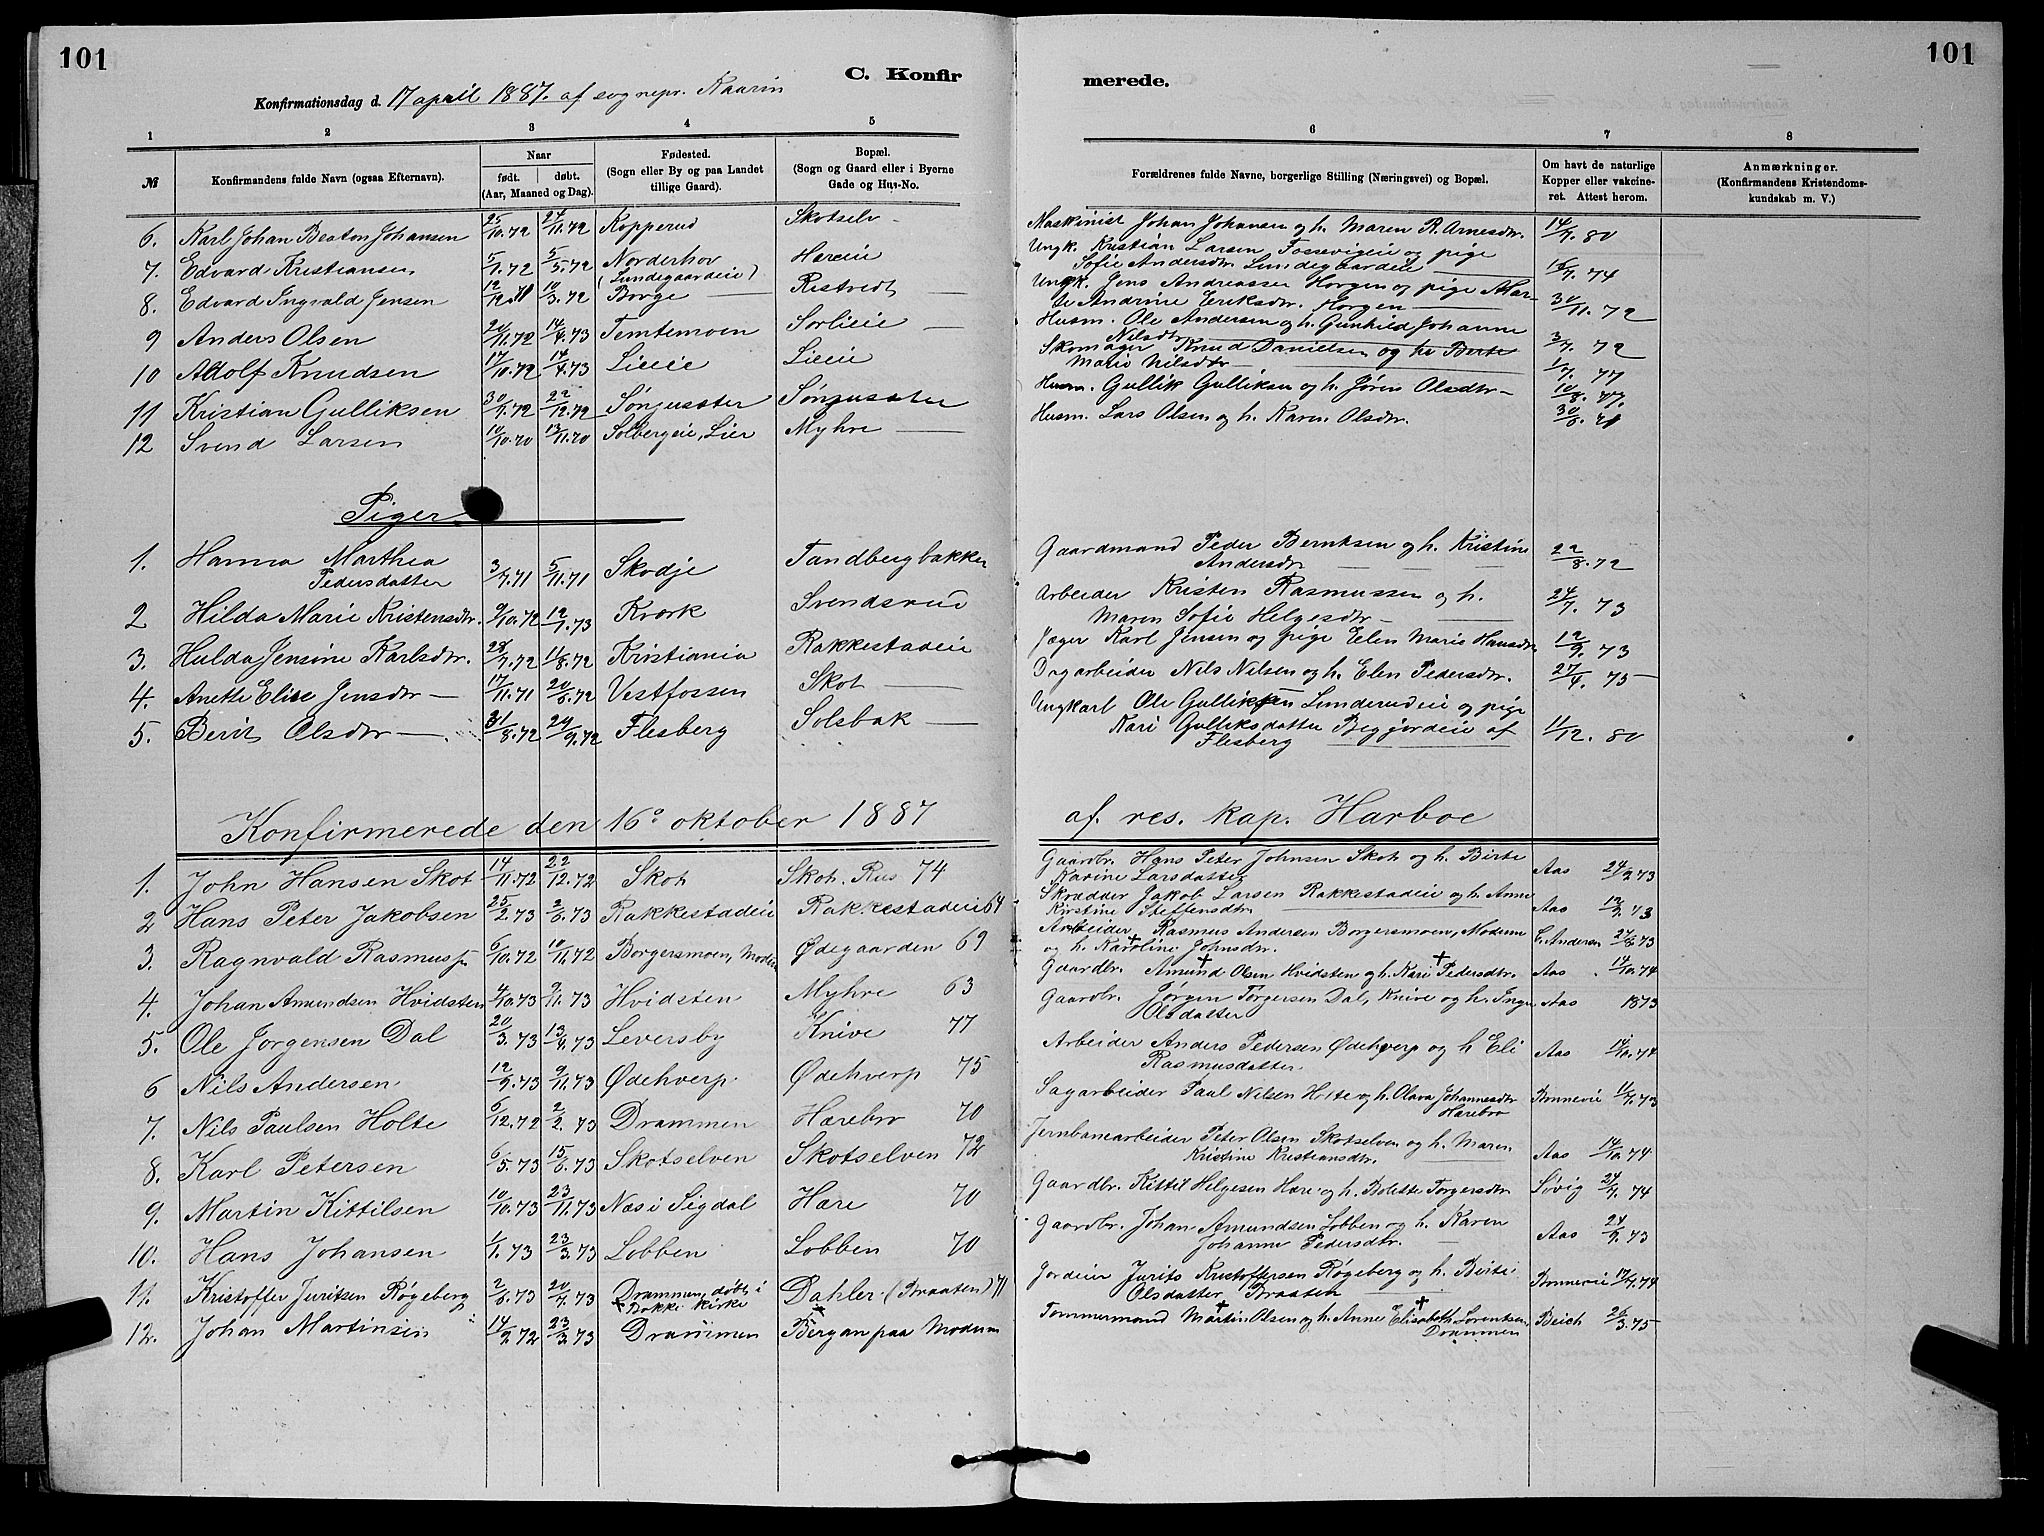 101
101
C. Konfir
merede.
Konfirmationsdag d. 17 april 1887. af sognepr. Kaarin
1 2 3 4 5 6 7 8
№
Konfirmandens fulde Navn (ogsaa Efternavn).
Naar
født. døbt.
(Aar, Maaned og Dag).
Fødested.
(Sogn eller By og paa Landet
tillige Gaard).
Bopæl.
(Sogn og Gaard eller i Byerne
Gade og Hus-No.
Forældrenes fulde Navne, borgerlige Stilling (Næringsvei) og Bopæl.
Om havt de naturlige
Kopper eller vakcine-
ret. Attest herom.
Anmærkninger.
(Konfirmandens Kristendoms-
kundskab m. V.)
6. Karl Johan Beaton Johansen 25/10.72 24/11.72 Kopperud Skotselv - Maskinist Johan Johansen og h. Maren R. Arnesdtr. 14/9.80
7. Edvard Kristiansen 5/1.72 5/5.72 Norderhov (Lundegaardeie) Hæreie Ungk. Kristian Larsen Fossevigeie og pige
Sofie Andersdtr. Lundegaardeie 16/7.74
8. Edvard Ingvald Jensen 12/12.71 10/3.72 Borge Ristvedt Ungk. Jens Andreassen Horgen og pige Mar-
te Andrine Eriksdtr. Horgen 30/11.72
9 Anders Olsen 20/11.72 14/4.73 Temtemoen Sorlieie Husm. Ole Andersen og h. Gunhild Johanne
Nilsdtr. 3/7.72
10 Adolf Knudsen 17/10.72 14/4.73 Lieie Lieie Skomager Knud Danielsen og h. Berte
Marie Nilsdtr 1/7.77
11 Kristian Gulliksen 30/9.72 22/12.72 Sønjusæter Sønjusæter Husm. Gullik Gulliksen og h. Jøren Olsdtr - 10/8.77.
12 Svend Larsen 10/10.70 13/11.70 Solbergeie, Lier Myhre Husm. Lars Olsen og h. Karen Olsdtr. 30/6.71
Piger
1. Hanna Marthea
Pedersdatter 3/7.71 5/11.71 Skodje Tandbergbakken Gaardmand Peder Berntsen og h. Kristine
Andersdtr 22/8.72
2 Hilda Marie Kristensdtr. 9/10.72 12/1.73 Kværk Svendsrud Arbeider Kristen Rasmussen og h.
Maren Sofie Helgesdtr - 24/7.73
3. Hulda Jensine Karlsdtr. 28/7.72 11/8.72 Kristiania Rakkestadeie Jæger Karl Jensen og pige Elen Marie Hansdtr 12/9.73
4. Anette Elise Jensdtr - 17/11.71 20/6.72 Vestfossen Skot Brgarbeider Nils Nilsen og h. Elen Pedersdtr. 27/4.75
5. Berit Olsdtr - 31/8.72 29/9.72 Flesberg Solsbak Ungkarl Ole Gulliksen Lunderudeie og pige
Kari Gulliksdatter Begjordeie af
Flesberg 11/12.80
Konfirmerede den 16º oktober 1887 af. res. kap. Harboe
1. John Hansen Skot 14/11.72 22/12.72 Skot Skot. Rus 74 Gaardbr. Hans Peter Johnsen Skot og h. Birte
Karine Larsdatter Aas 24/7.73
2 Hans Peter Jakobsen 25/2.73 2/6.73 Rakkestadeie Rakkestadeie 64 Skrædder Jakob Larsen Rakkestadeie og h. Anne
Kirstine Steffensdtr. Aas 12/9.73
3. Ragnvald Rasmuss. 6/10.72 10/11.72 Borgersmoen, Modum Ødegaarden 69 Arbeider Rasmus Andersen Borgersmoen, Modum
og h. Karoline Johnsdtr. C. Andersen 27/6.73
4. Johan Amundsen Hvidsten 4/10.73 9/11.73 Hvidsten Myhre 63 Gaardbr. Amund Olsen Hvidsten og h. Kari Pedersdtr. Aas 14/10.74
5. Ole Jorgensen Dal 20/3.73 13/4.73 Leversby Knive 77 Gaardbr. Jørgen Torgersen Dal, Knive og h. Inger
Olsdatter Aas 1873
6 Nils Andersen 12/9.73 9/11.73 Ødehverp. Ødehverp 75 Arbeider Anders Pedersen Ødehverp og h Eli
Rasmusdatter Aas 14/10.74
7. Nils Paulsen Holte 6/12.72 2/2.73 Drammen Hærebro 70 Sagarbeider Paul Nilsen Holte og h. Olava Johannesdtr
Hærebro Bonnevie 11/7.73
8. Karl Petersen 6/5.73 15/6.73 Skotselven Skotselven 72 Jernbanearbeider Peter Olsen Skotselven og h. Maren
Kristine Kristiansdtr. Aas 14/10.74
9. Martin Kittilsen 10/10.73 23/11.73 Næs i Sigdal Hære 70 Gaardbr. Kittil Helgesen Hære og h. Bolette Torgersdtr Løvig 24/7.74
10. Hans Johansen 1/1.73 23/3.73 Lobben Lobben 70 Gaardbr. Johan Amundsen Lobben og h. Karen
Johanne Pedersdtr. Aas 24/9.73
11. Kristoffer Juritsen Røgeberg 2/6.73 20/7.73 Drammen, døbt i
Bakke kirke Dahler (Braaten) 71 Jordeier Jurits Kristoffersen Røgeberg og h. Birte
Olsdatter Braaten Bonnevie 17/7.74
12. Johan Martinsen 14/9.72 23/3.73 Drammen Bergan paa Modum Tømmermand Martin Olsen og h. Anne Elisabeth Lorentsen
Drammen Beich 26/3.75